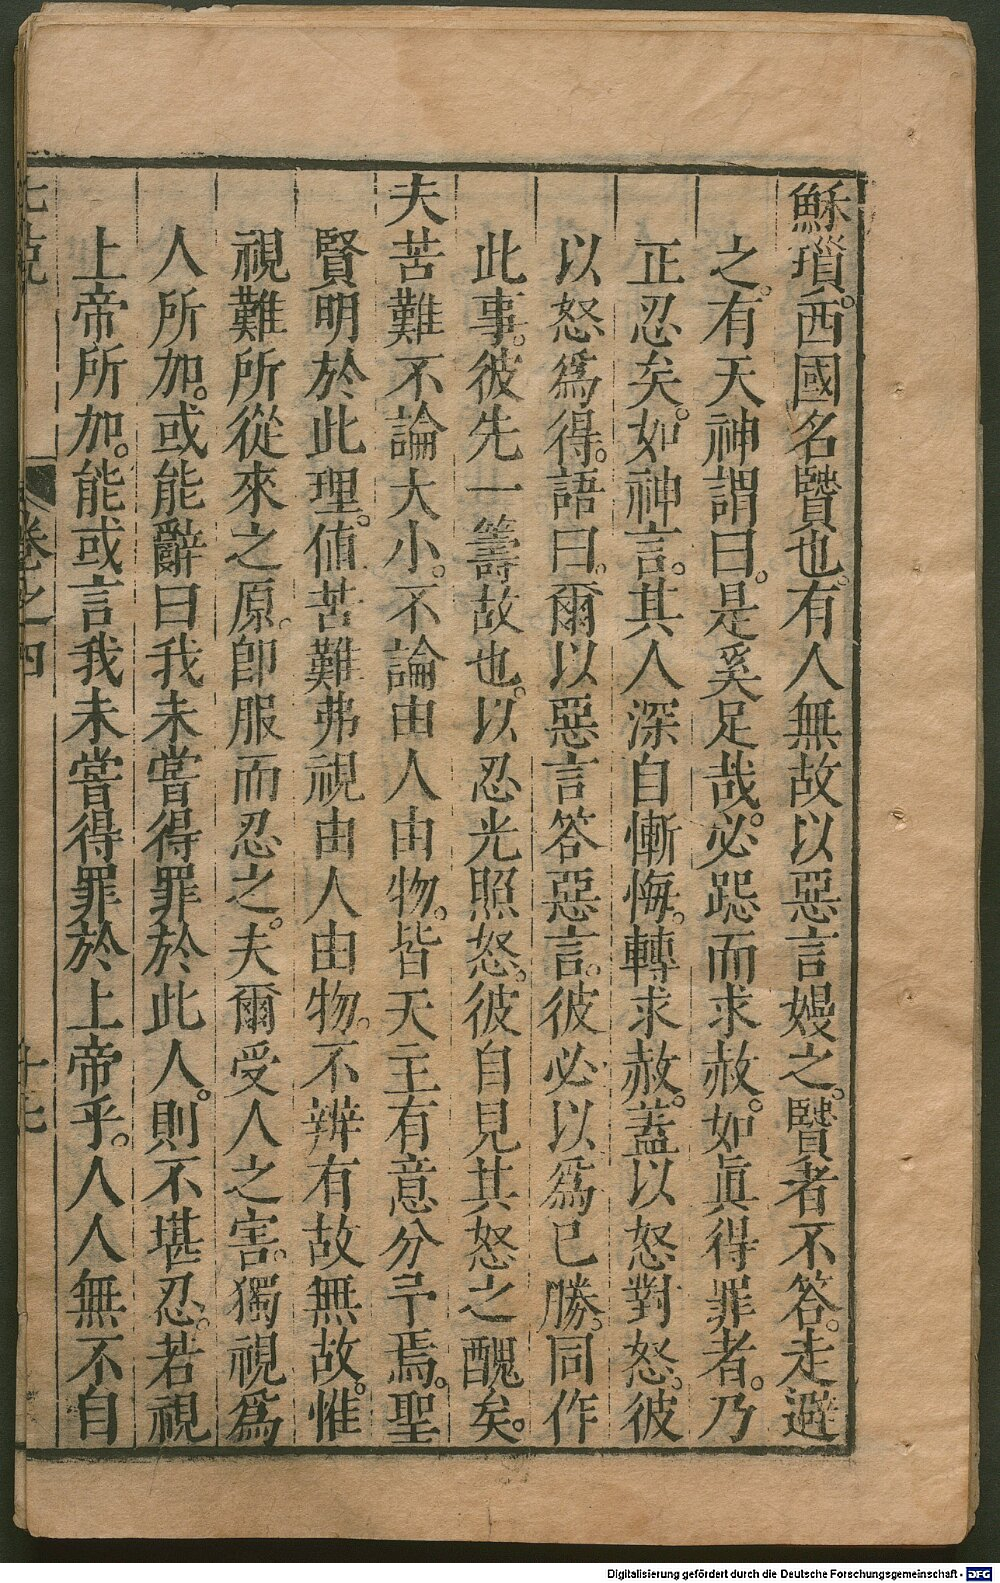 穌瑣。西國名賢也。有人無故以惡言嫚之。賢者不答。走避
之。有天神謂曰。是奚足哉。必跽而求赦。如眞得罪者。乃
正忍矣。如神言。其人深自慚悔。轉求赦。蓋以怒對怒。彼
以怒爲得。語曰。爾以惡言答惡言。彼必以爲已勝。同作
此事。彼先一籌故也。以忍光照怒。彼自見其怒之醜矣。
夫苦難不論大小。不論由人由物。皆天主有意分予焉。聖
賢明於此理。値苦難弗視由人由物。不辨有故無故。惟
視難所從來之原。卽服而忍之。夫爾受人之害。獨視爲
人所加。或能辭曰我未嘗得罪於此人。則不堪忍。若視
上帝所加。能或言我未嘗得罪於上帝乎。人人無不自
七克
卷之四
十七
Digitalisierung gefördert durch die Deutsche Forschungsgemeinschaft - DFG